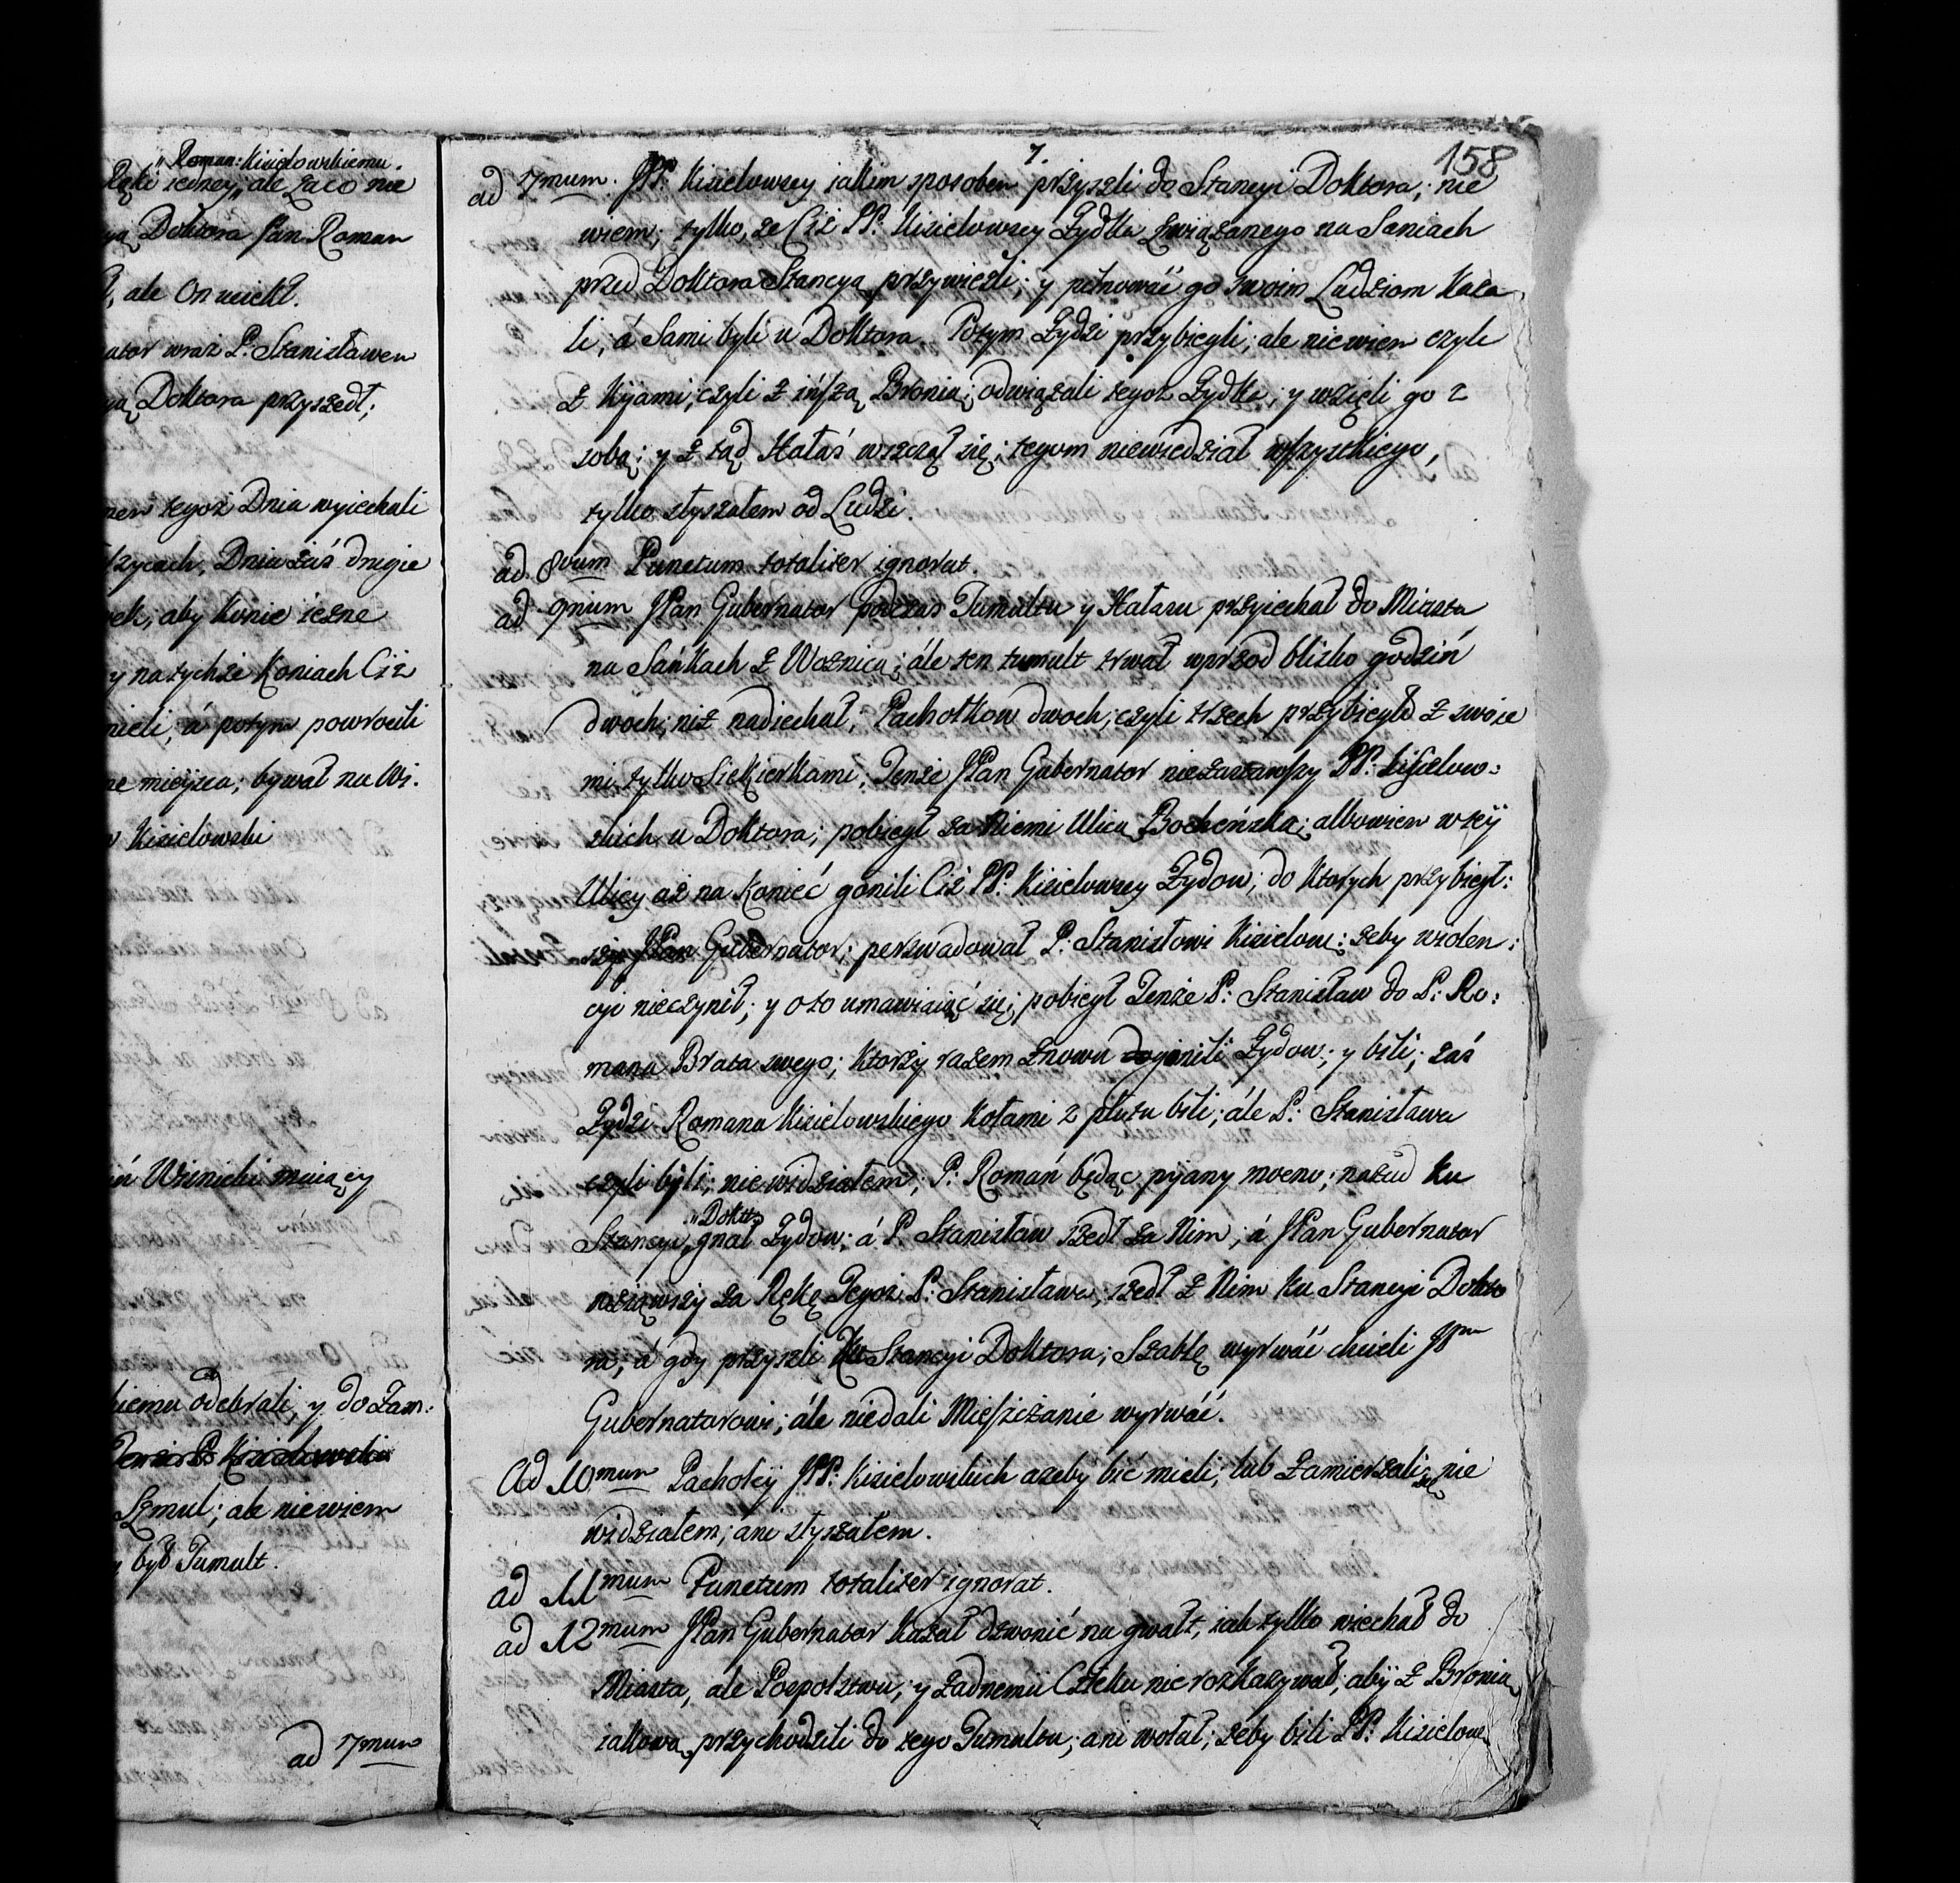 " Roman: Kisielowskiemu.
Ręki iedney, ale zaco nie
Doktora Pan Roman
ale On uciekł.
wraz P: Stanisławem
Doktora przyszedł;
tegoż Dnia wyiechali
Dnia zaś drugie
aby Konie iezne
y na tychże Koniach Ciż
á potym powrocili
mieysca; bywał na Wi.
Kisielowski
Wisnicki maiący
odebrali, y do Zam:
Kisielowski
Szmul; ale niewiem
był Tumult.
ad 7mum
7.
158
ad 7mum. JPP. Kisielowscy iakim sposobem przyszli do Stancyi Doktora; nie
wiem; tylko, że Ciż PP. Kisielowscy Zydka związanego na Saniach
przed Doktora Stancyą przywiezli; y pilnować go swoim Ludziom Kaza
li, á Sami byli u Doktora. Potym Zydzi przybiegli; ale niewiem czyli
z Kijami, czyli z inszą Bronią; odwiązali tegoż Zydka; y wzięli go z
sobą; y z tąd Hałas wszczął się; tegom niewiedział wszystkiego,
tylko słyszałem od Ludzi.
ad 8vum Punctum totaliter ignorat.
ad 9num JPan Gubernator podczas Tumultu y Hałasu przyiechał do Miasta
na Sańkach z Woznicą; ále ten tumult trwał wprzod blizko godzin
dwoch; niż nadiechał; Pachołkow dwoch, czyli trzech przybiegło z swoie
mi tylko Siekierkami; Tenże JPan Gubernator niezastawszy PP: Kisielow:
skich u Doktora; pobiegł za Niemi Ulicą Bocheńską; albowiem w tey
Ulicy aż na koniec gonili Ciż PP: Kisielowscy Zydow; do Ktorych przybiegł:
szy JPan Gubernator; perswadował P: Stanisłowi Kisielow: żeby wiolen:
cyi nieczynił; y o to umawiaiąć się; pobiegł Tenże P: Stanisław do P: Ro:
mana Brata swego; Ktorzy razem znowu gonili Zydow; y bili; zaś
Zydzi Romana Kisielowskiego Kołami z płotu bili; ále P: Stanisława
czyli bili; niewidziałem; P: Roman będąc pijany mocno; nazad ku
" Dokto
Stancyi, gnał Zydow; á P. Stanisław szedł za Nim; á JPan Gubernator
wziąwszy za Rękę Tegoż P: Stanisława, szedł z Nim ku Stancyi Dokto
ra; á gdy przyszli Ku Stancyi Doktora; Szablę wyrwać chcieli JPnu
Gubernatorowi; ále niedali Mieszczanie wyrwáć.
Ad 10mum Pachołcy JPP: Kisielowskich azeby bić mieli; lub zamierzali się nie
widziałem; áni słyszałem.
ad 11mum Punctum totaliter ignorat.
ad 12mum JPan Gubernator Kazał dzwonić na gwałt, iak tylko wiechał do
Miasta, ale Pospolstwu, y żadnemu Człeku nie rozkazywał; aby z Bronią
iakową przychodzili do tego Tumultu; ani wołał; żeby bili PP: Kisielow